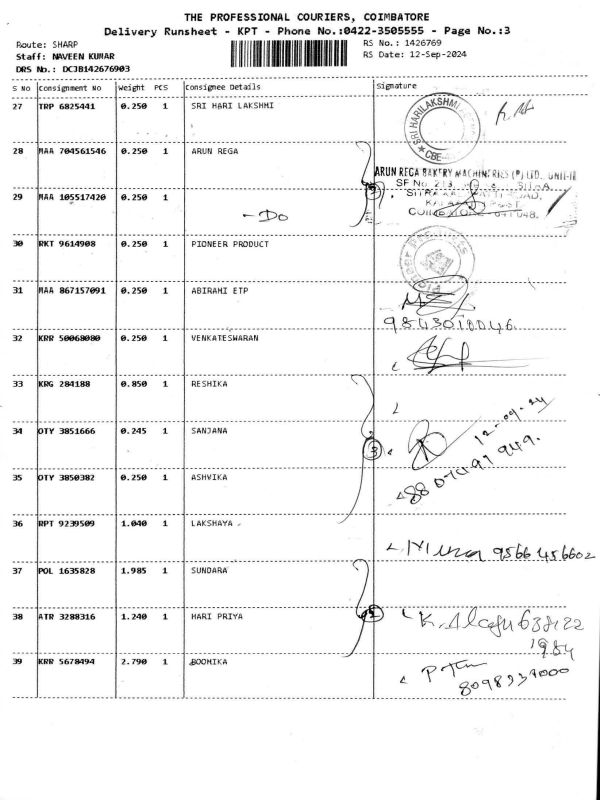 THE PROFESSIONAL COURIERS, COIMBATORE
Delivery Runsheet - KPT - Phone No.:0422-3505555 - Page No.:3
Route: SHARP
RS No.: 1426769
Staff: NAVEEN KUMAR
RS Date: 12-Sep-2024
DRS No.: DCJB142676903
S No Consignment No Weight PCS Consignee Details Signature
27 TRP 6825441 0.250 1 SRI HARI LAKSHMI
SRI HARILAKSHMI
CBE
28 MAA 704561546 0.250 1 ARUN REGA
ARUN REGA BAKERY MACHINERIES (P) LTD., UNIT-II
SF No
29 MAA 105517420 0.250 1
- Do
30 RKT 9614908 0.250 1 PIONEER PRODUCT
31 MAA 867157091 0.250 1 ABIRAHI ETP
9843010046
32 KRR 50068080 0.250 1 VENKATESWARAN
33 KRG 284188 0.850 1 RESHIKA
34 OTY 3851666 0.245 1 SANJANA
3
12-09-24
35 OTY 3850382 0.250 1 ASHVIKA
36 RPT 9239509 1.040 1 LAKSHAYA
9566456602
37 POL 1635828 1.985 1 SUNDARA
38 ATR 3288316 1.240 1 HARI PRIYA
2
K. Alagu
39 KRR 5678494 2.790 1 BOOMIKA